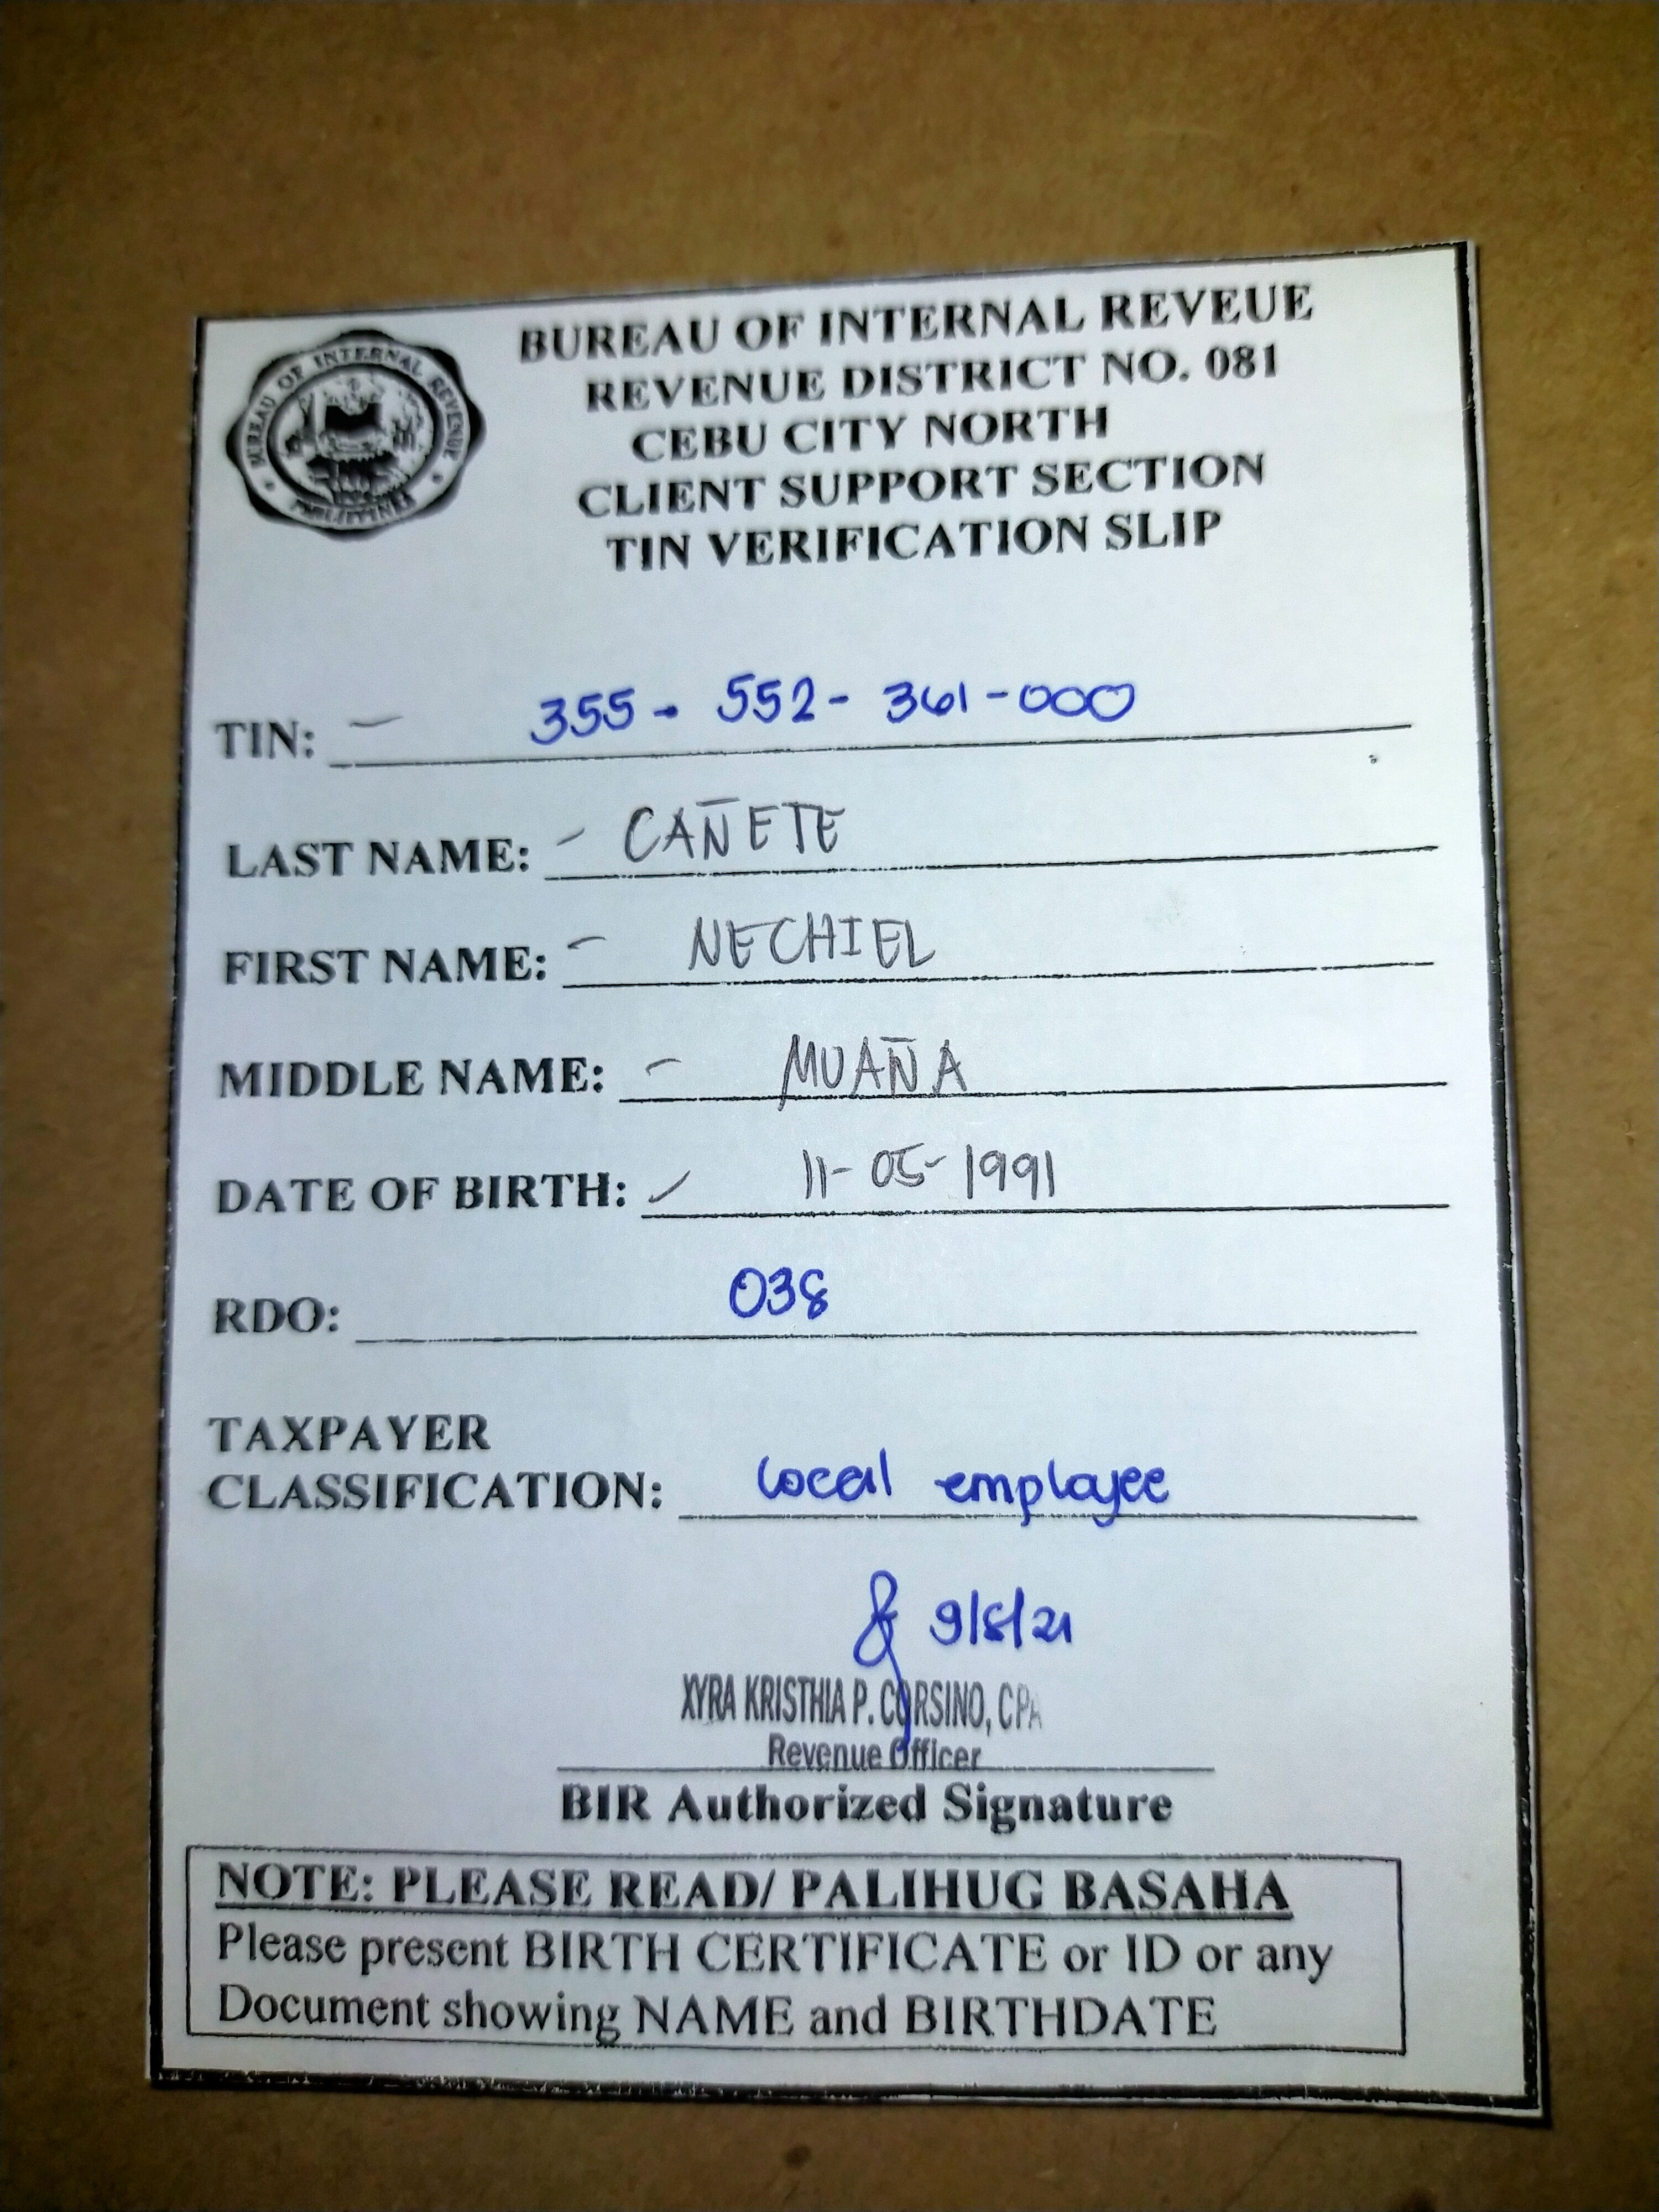 BUREAU OF INTERNAL REVEUE
REVENUE DISTRICT NO. 081
CEBU CITY NORTH
CLIENT SUPPORT SECTION
TIN VERIFICATION SLIP
BUREAU OF INTERNAL REVENUE
PHILIPPINES
TIN: - 355 - 552 - 361 - 000
LAST NAME: - CAÑETE
FIRST NAME: - NECHIEL
MIDDLE NAME: - MUAÑA
DATE OF BIRTH: - 11-05-1991
RDO: 038
TAXPAYER
CLASSIFICATION: local employee
9/8/21
XYRA KRISTHIA P. CORSINO, CPA
Revenue Officer
BIR Authorized Signature
NOTE: PLEASE READ/ PALIHUG BASAHA
Please present BIRTH CERTIFICATE or ID or any
Document showing NAME and BIRTHDATE